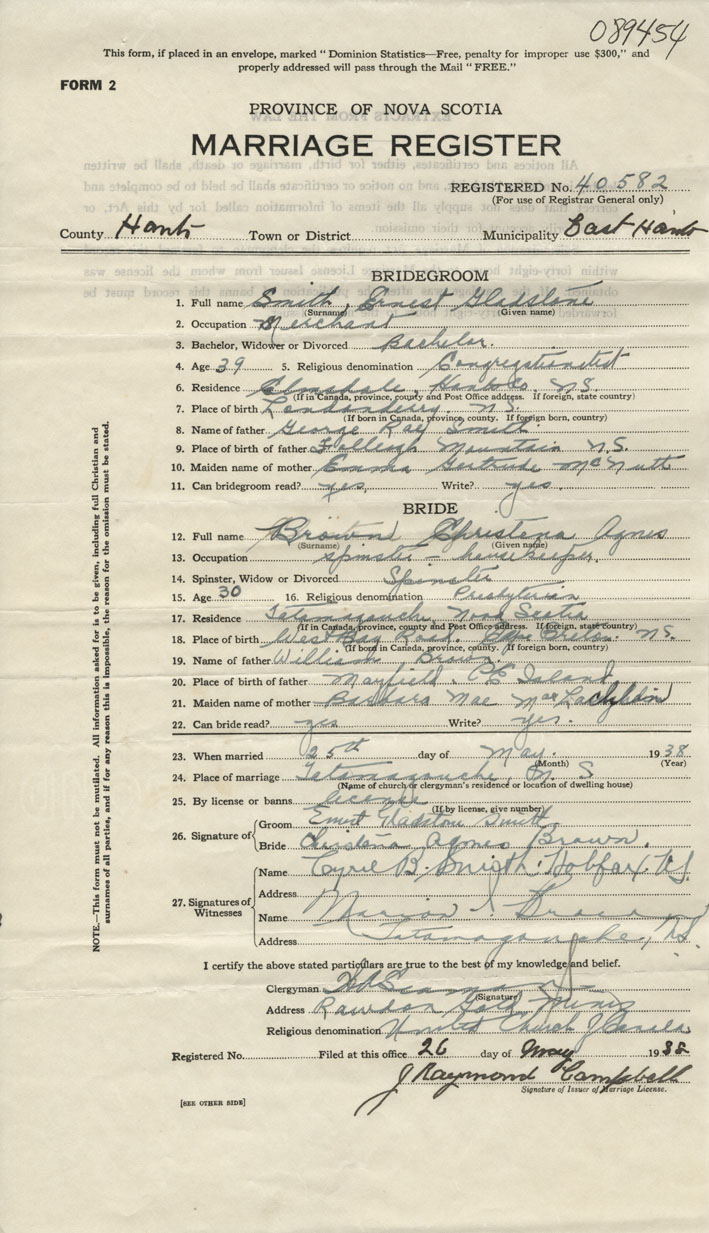 089454
This form, if placed in an envelope, marked "Dominion Statistics—Free, penalty for improper use $300," and
properly addressed will pass through the Mail "FREE."
FORM 2
PROVINCE OF NOVA SCOTIA
MARRIAGE REGISTER
REGISTERED No. 40582
(For use of Registrar General only)
County Hants Town or District Municipality East Hants
BRIDEGROOM
1. Full name Smith, Ernest Gladstone
(Surname) (Given name)
2. Occupation Merchant
3. Bachelor, Widower or Divorced Bachelor.
4. Age 39 5. Religious denomination Congregationalist
6. Residence Elmsdale, Hants Co. N.S.
(If in Canada, province, county and Post Office address. If foreign, state country)
7. Place of birth Londonderry. N.S.
(If born in Canada, province, county. If foreign born, country)
8. Name of father George Ray Smith
9. Place of birth of father Folleigh Mountain N.S.
10. Maiden name of mother Emma Gertrude McNutt
11. Can bridegroom read? yes, Write? yes.
BRIDE
12. Full name Brown Christena Agnes
(Surname) (Given name)
13. Occupation spinster - housekeeper,
14. Spinster, Widow or Divorced Spinster
15. Age 30 16. Religious denomination Presbyterian
17. Residence Tatamagouche, Nova Scotia
(If in Canada, province, county and Post Office address. If foreign, state country)
18. Place of birth West Bay Road. Cape Breton. N.S.
(If born in Canada, province, county. If foreign born, country)
19. Name of father William Brown.
20. Place of birth of father Mayfield, P.E Island
21. Maiden name of mother Barbara Mae
22. Can bride read? yes Write? yes.
23. When married 25th day of May. 1938
(Month) (Year)
24. Place of marriage Tatamagouche, N S
(Name of church or clergyman's residence or location of dwelling house)
25. By license or banns license
(If by license, give number)
26. Signature of Groom Ernest Gladston Smith
Bride Christena Agnes Brown.
27. Signatures of Witnesses
Name Cyril B. Smith. N.S.
Address
Name Marion
Address Tatamagouche, N.S.
I certify the above stated particulars are true to the best of my knowledge and belief.
Clergyman
(Signature)
Address Rawdon Gold Mines
Religious denomination United Church of Canada
Registered No. Filed at this office 26 day of May 1938
J Raymond Campbell
Signature of Issuer of Marriage License.
[SEE OTHER SIDE]
NOTE.—This form must not be mutilated. All information asked for is to be given, including full Christian and
surnames of all parties, and if for any reason this is impossible, the reason for the omission must be stated.